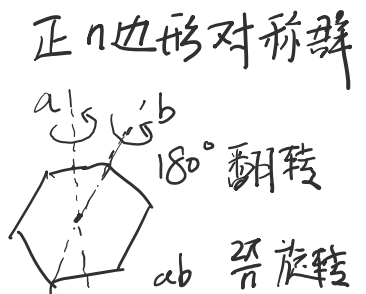 正n边形对称群
a b
180° 翻转
ab 2π/n 旋转